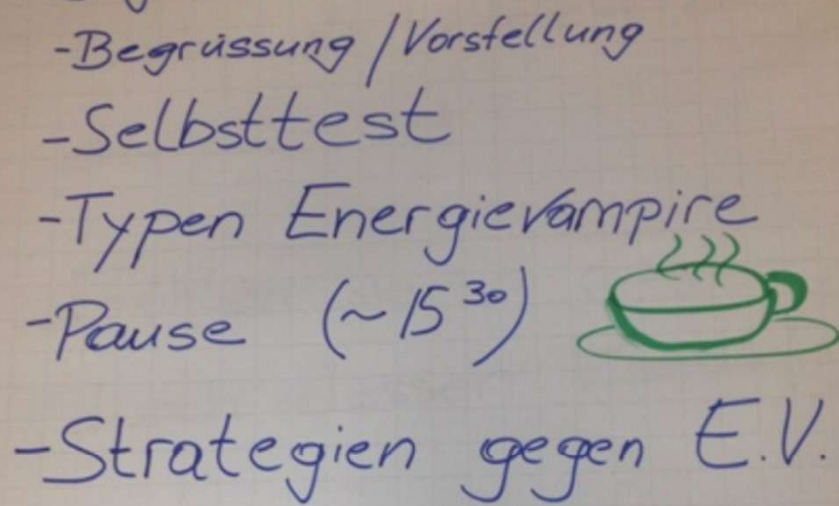 -Begrüssung/Vorstellung
-Selbsttest
-Typen Energievampire
-Pause (~15³⁰)
-Strategien gegen E.V.